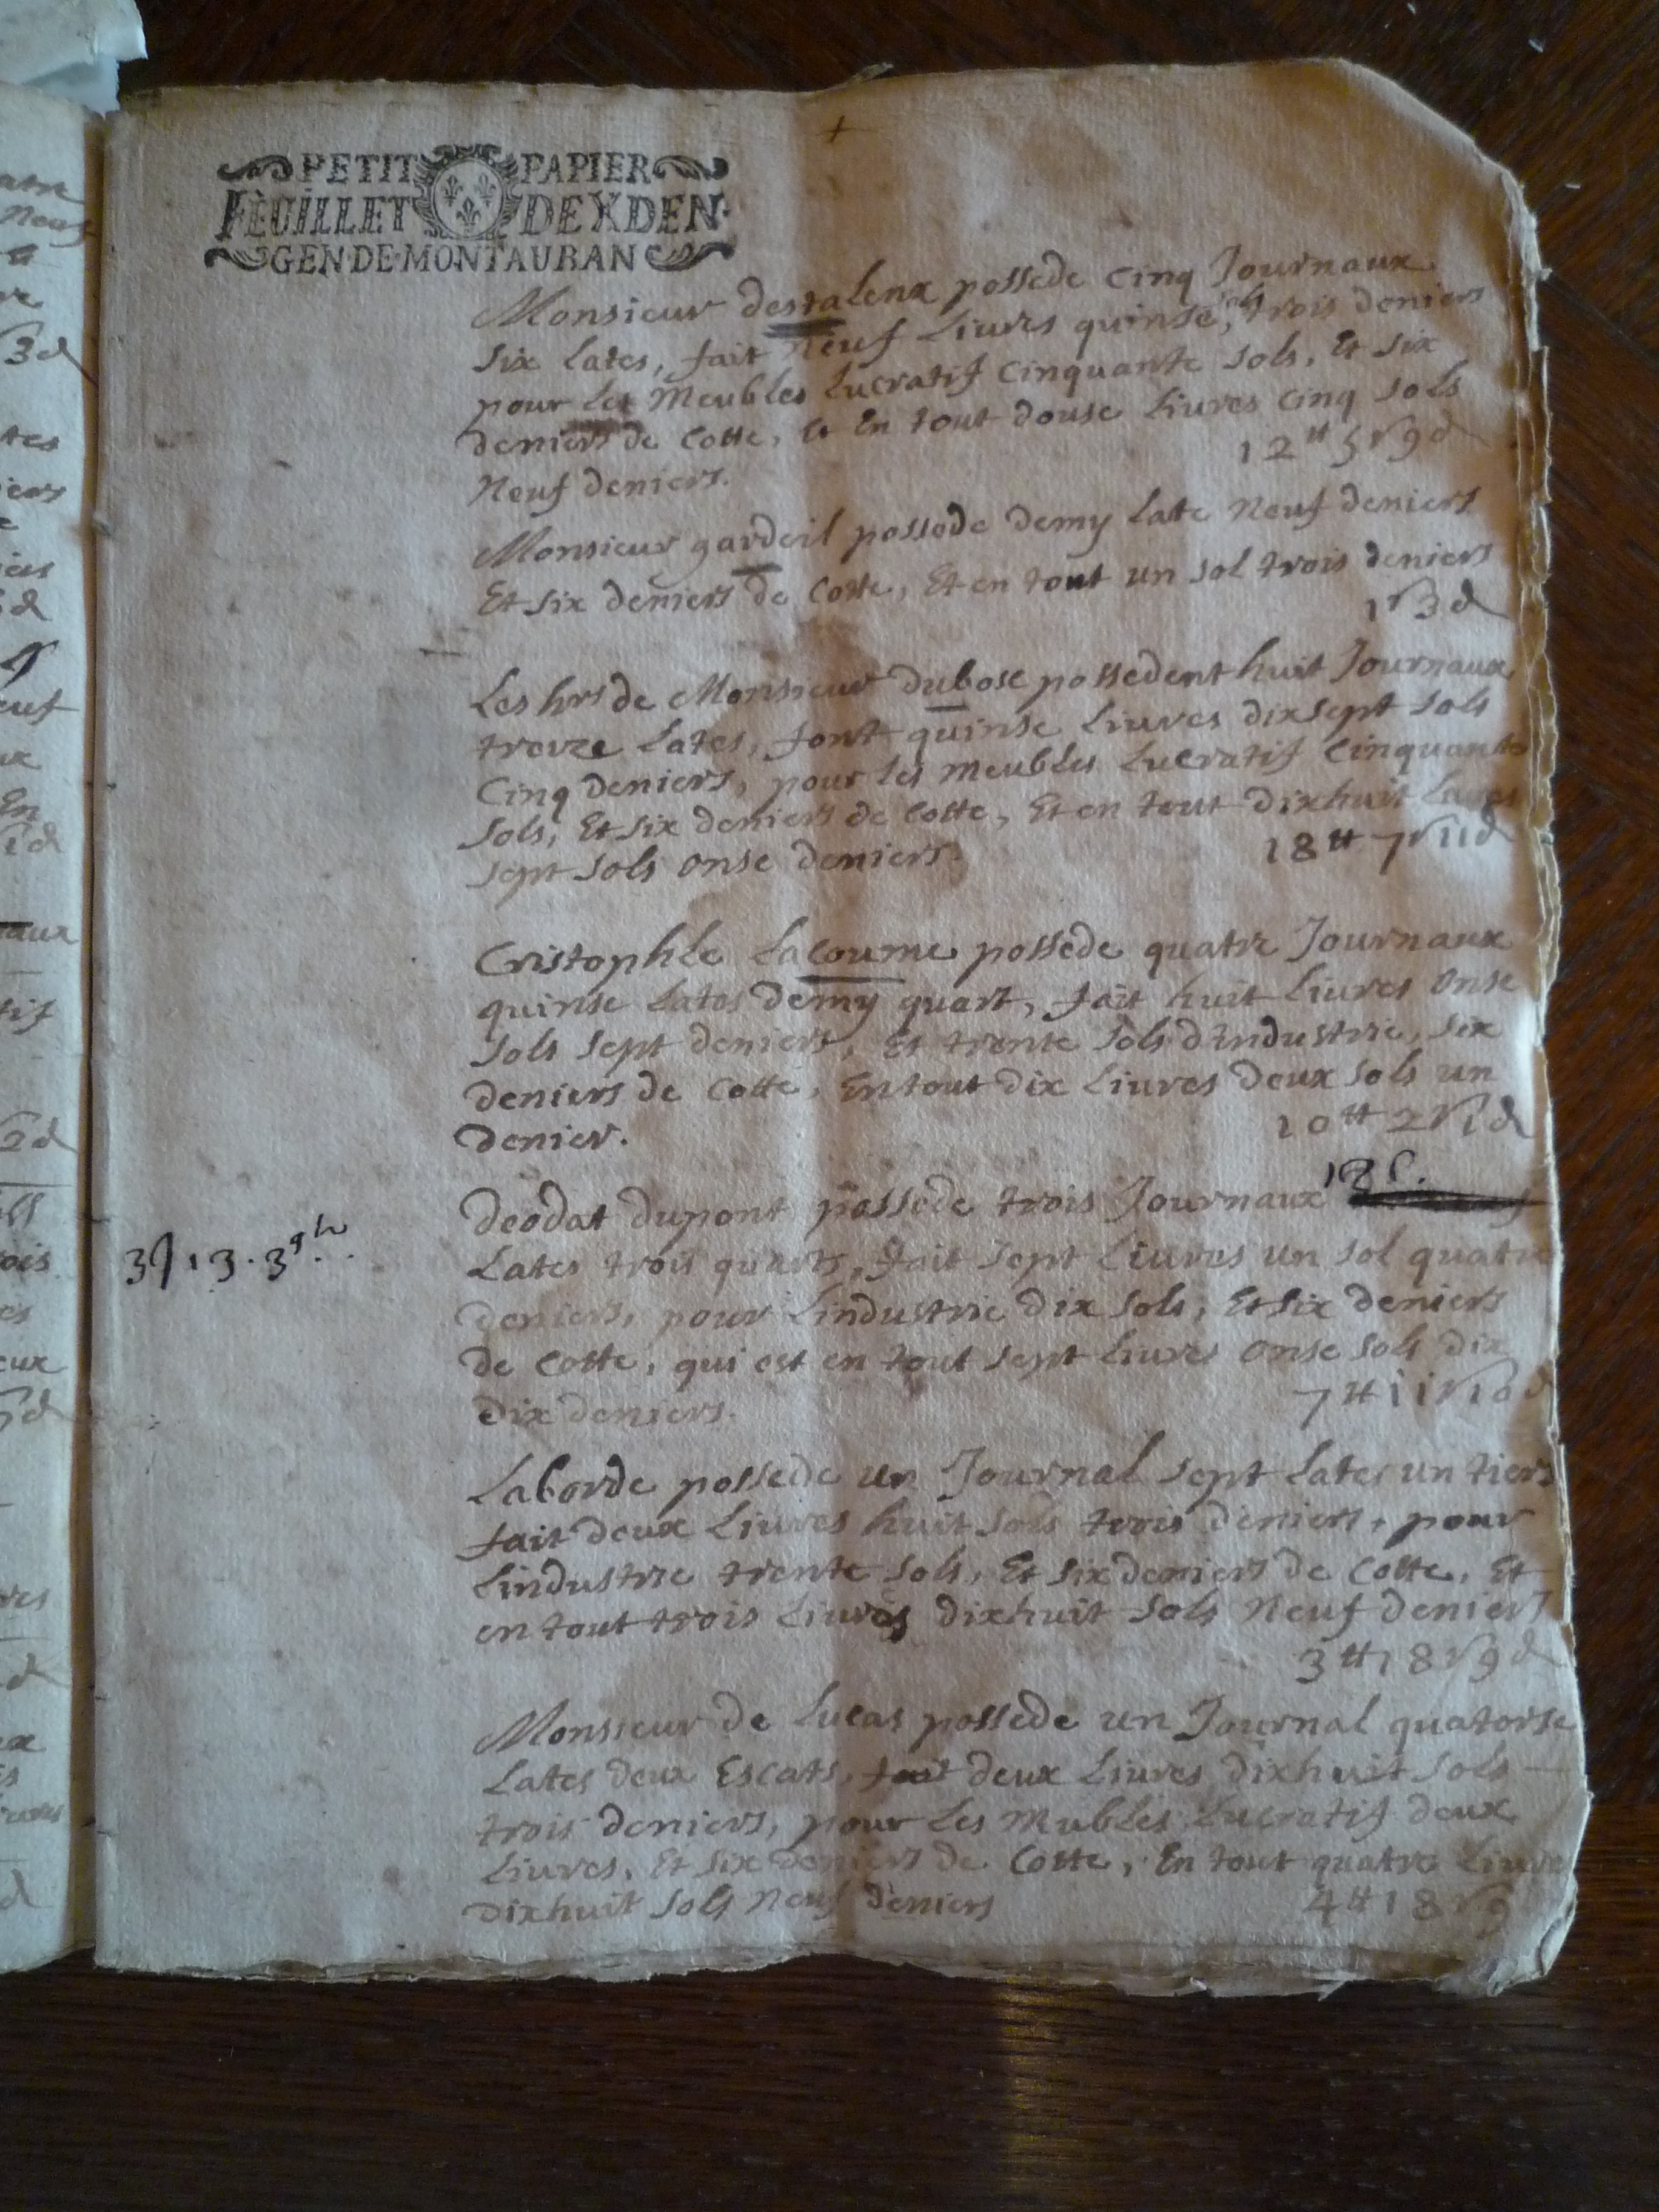 PETIT PAPIER
FEUILLET DE X DEN.
GEN DE MONTAUBAN
Monsieur destalenx possede cinq Journaux
six Lates, fait Neuf Livres quinse sols trois deniers
pour Les Meubles Lucratif cinquante sols, Et six
deniers de Cotte, Et En tout douse Livres cinq sols
Neuf deniers. 12tt 5s 9d
Monsieur gardeil possede demy Late Neuf deniers
Et six deniers de Cotte, Et en tout un sol trois deniers
1s 3d
Les hrs de Monsieur dubosc possedent huit Journaux
treize Lates, font quinse Livres dixsept sols
Cinq deniers, pour les meubles Lucratif Cinquante
sols, Et six deniers de Cotte, Et en tout dixhuit Livres
sept sols onse deniers. 18tt 7s 11d
Cristophle Lacoume possede quatre Journaux
quinse Lates demy quart, fait huit Livres onse
sols sept deniers, Et trente sols d'industrie, six
deniers de Cotte, En tout dix Livres deux sols un
denier. 10tt 2s 1d
Deodat dupont possede trois Journaux
3J 13. 3qts. Lates trois quarts, fait sept Livres un sol quatre
deniers, pour Lindustrie dix sols, Et six deniers
de Cotte, qui est en tout sept Livres onse sols dix
dix deniers. 7tt 11s 10d
Laborde possede un Journal sept Lates un tiers
fait deux Livres huit sols trois deniers, pour
Lindustrie trente sols, Et six deniers de Cotte, Et
en tout trois Livres dixhuit sols Neuf deniers
3tt 18s 9d
Monsieur de Lucas possede un Journal quatorse
Lates deux Escats, fait deux Livres dixhuit sols
trois deniers, pour Les Mubles Lucratif deux
Livres, Et six deniers de Cotte, En tout quatre Livres
dixhuit sols Neuf deniers 4tt 18s 9